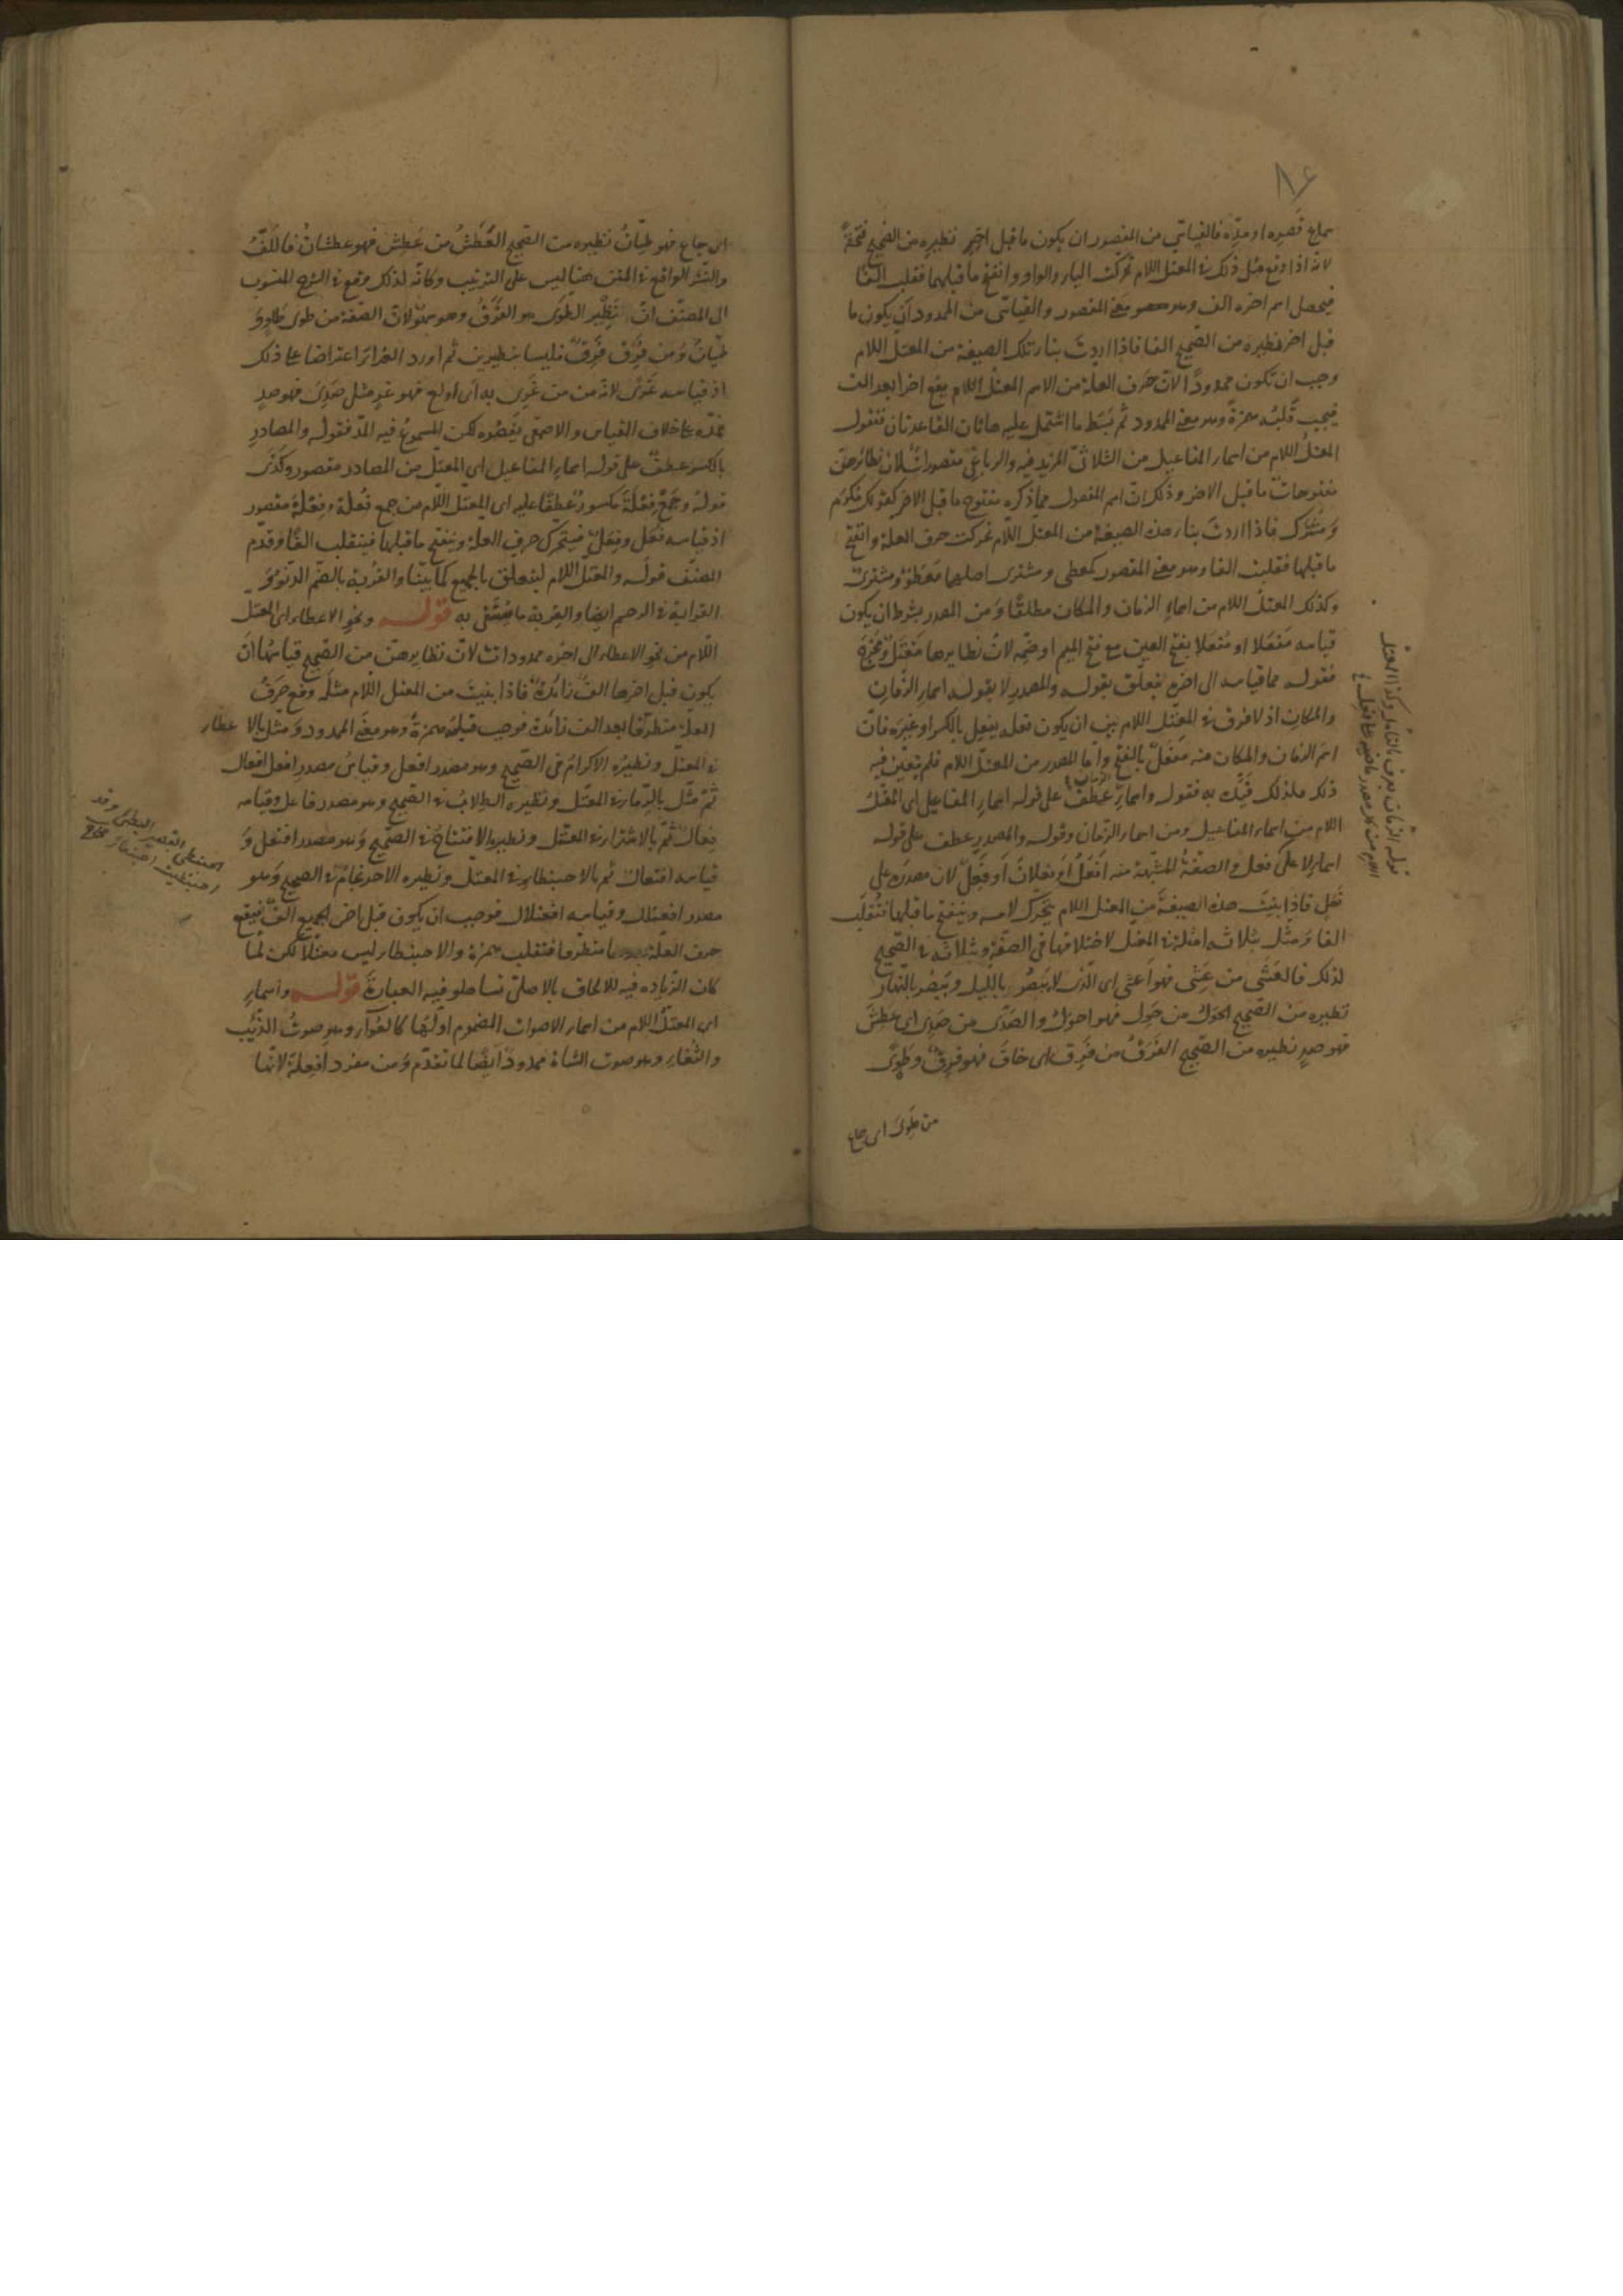 ٨٦
سماع قصره او مده فالقياسي من المقصور ان يكون ما قبل اخر نظيره من الصحيح فتحة
لانه اذا وقع مثل ذلك في المعتل اللام تحركت الياء والواو وانفتح ما قبلهما فقلبت الفا
فيحصل اسم اخره الف وهو معنى المقصور والقياسي من الممدود ان يكون ما
قبل اخر نظيره من الصحيح الفا فاذا اردت بناء تلك الصيغة من المعتل اللام
وجب ان تكون ممدودًا لان حرف العلة من الاسم المعتل اللام يقع اخرا بعد الف
فيجب قلبه همزةً وهو معنى الممدود ثم بَسَط ما اشتمل عليه هاتان القاعدتان فنقول
المعتل اللام من اسماء المفاعيل من الثلاثي المزيد فيه والرباعي مقصورات لان نظائرهن
مفتوحات ما قبل الاخر وذلك ان اسم المفعول مما ذكره مفتوح ما قبل الاخر كقولك مكرَم
ومشتَرَك فاذا اردت بناء هذه الصيغة من المعتل اللام تحركت حرف العلة وانفتح
ما قبلها فقلبت الفا وهو معنى المقصور كمعطى ومشترى اصلهما معطَوٌ ومشترىٌ
وكذلك المعتل اللام من اسماء الزمان والمكان مطلقًا ومن المصدر بشرط ان يكون
قياسه مَفعَلا او مُفعَلا بفتح العين مع فتح الميم او ضمه لان نظايرها مَقتَل ومُخرَج
فقوله مما قياسه الى اخره يتعلق بقوله والمصدر لا بقوله اسماء الزمان
والمكان اذ لا فرق في المعتل اللام بين ان يكون فعله يفعِل بالكسر او غيره فان
اسم الزمان والمكان منه مفعَلٌ بالفتح واما المصدر من المعتل اللام فلم يتعين فيه
ذلك فلذلك قيّد به فقوله واسماءِ الزمان عطفٌ على قوله اسماء المفاعيل اى المعتل
اللام من اسماء المفاعيل ومن اسماء الزمان وقوله والمصدر عطف على قوله
اسماء لا على فعل والصفة المشبهة منه أفعَلُ أو فعلانُ أو فَعِلٌ لان مصدره على
فَعَل فاذا بنيت هذه الصيغة من المعتل اللام يتحرك لامه وينفتح ما قبلها فتُقلَب
الفا ومثّل بثلاثة امثلة في المعتل لاختلافها في الصفة وبثلاثة في الصحيح
لذلك فالعَشَى من عَشِى فهو اعشى اى الذى لا يَبصُر بالليل ويَبصُر بالنهار
نظيره من الصحيح الحَوَل من حَوِل فهو احول والصَدَى من صَدِىَ اى عَطِشَ
فهو صدٍ نظيره من الصحيح الفَرَقُ من فَرِقَ اى خاف فهو فرِقٌ وطَوًى
من طَوِىَ اى جاع
قوله الزمان
اى جاع فهو طيّانُ نظيره من الصحيح العَطَشُ من عَطِش فهو عطشانُ فاللَّفُّ
والنشر الواقع في المتن هنا ليس على الترتيب وكانه لذلك وقع في الشرح المنسوب
الى المصنف ان نظير الطَوَى هو الفَرَقُ وهو سهوٌ لان الصفة من طوى طاوٍ و
طيّانُ ومن فَرِقَ فَرِقٌ فليسا بنظيرين ثم اورد الغراء اعتراضا على ذلك
اذ قياسه غَرًى لانه من من غَرِى به اى اولع فهو غرٍ مثل صَدِىَ فهو صدٍ
فمدّه على خلاف القياس والاصمعى يَقصُره لكن المسموع فيه المدّ فقوله والمصادرِ
بالكسر عطفٌ على قوله اسماء المفاعيل اى المعتل من المصادر مقصور وكذى
قوله وجمعِ فِعْلَةَ مكسورٌ عطفًا عليه اى المعتل اللام من جمع فُعلة وفِعلة مقصور
اذ قياسه فُعَل وفِعَلٌ فيتحرك حرف العلة وينفتح ما قبلها فينقلب الفًا وقدّم
المصنف قوله والمعتل اللام ليتعلق بالجميع كما بيّنا والقُربة بالضم الدنوّ و
القرابة في الرحم ايضا والقِربة ما يُستقى به قوله ونحو الاعطاء اى المعتل
اللام من نحو الاعطاء الى اخره ممدودات لان نظايرهنّ من الصحيح قياسُها ان
يكون قبل اخرها الفٌ زائدةٌ فاذا بنيتَ من المعتل اللام مثلَه وقع حرفُ
العلة متطرفا بعد الف زائدة فوجب قلبُه همزةً وهو معنى الممدود ومثّل بالاعطاء
في المعتل ونظيرُه الاكرامُ في الصحيح وهو مصدر افعل وقياسُ مصدرِ افعل افعال
ثم مثّل بالرِماء في المعتل ونظيره الطِلابُ في الصحيح وهو مصدر فاعل وقياسه
فِعالٌ ثمّ بالاشتراء في المعتل ونظيره الافتتاح في الصحيح وهو مصدر افتعل و
قياسه افتعال ثم بالاحبنطاء في المعتل ونظيره الاحرنجامُ في الصحيح وهو
مصدر افعنلل وقياسه افعنلال فوجب ان يكون قبل اخر الجميع الفٌ فيقع
حرف العلة بعدها متطرفا فتقلب همزة والاحبنطاء ليس معتلًّا لكن لما
كان الزيادة فيه للالحاق بالاصلى تساهلوا فيه العبارة قوله واسماءِ
اى المعتل اللام من اسماء الاصوات المضموم اولُها كالعُواء وهو صوتُ الذئب
والثُغاء وهو صوت الشاة ممدودٌ ايضًا لما تقدّم ومن مفرد افعِلة لانها
الحبنطى القصير البطين وقد